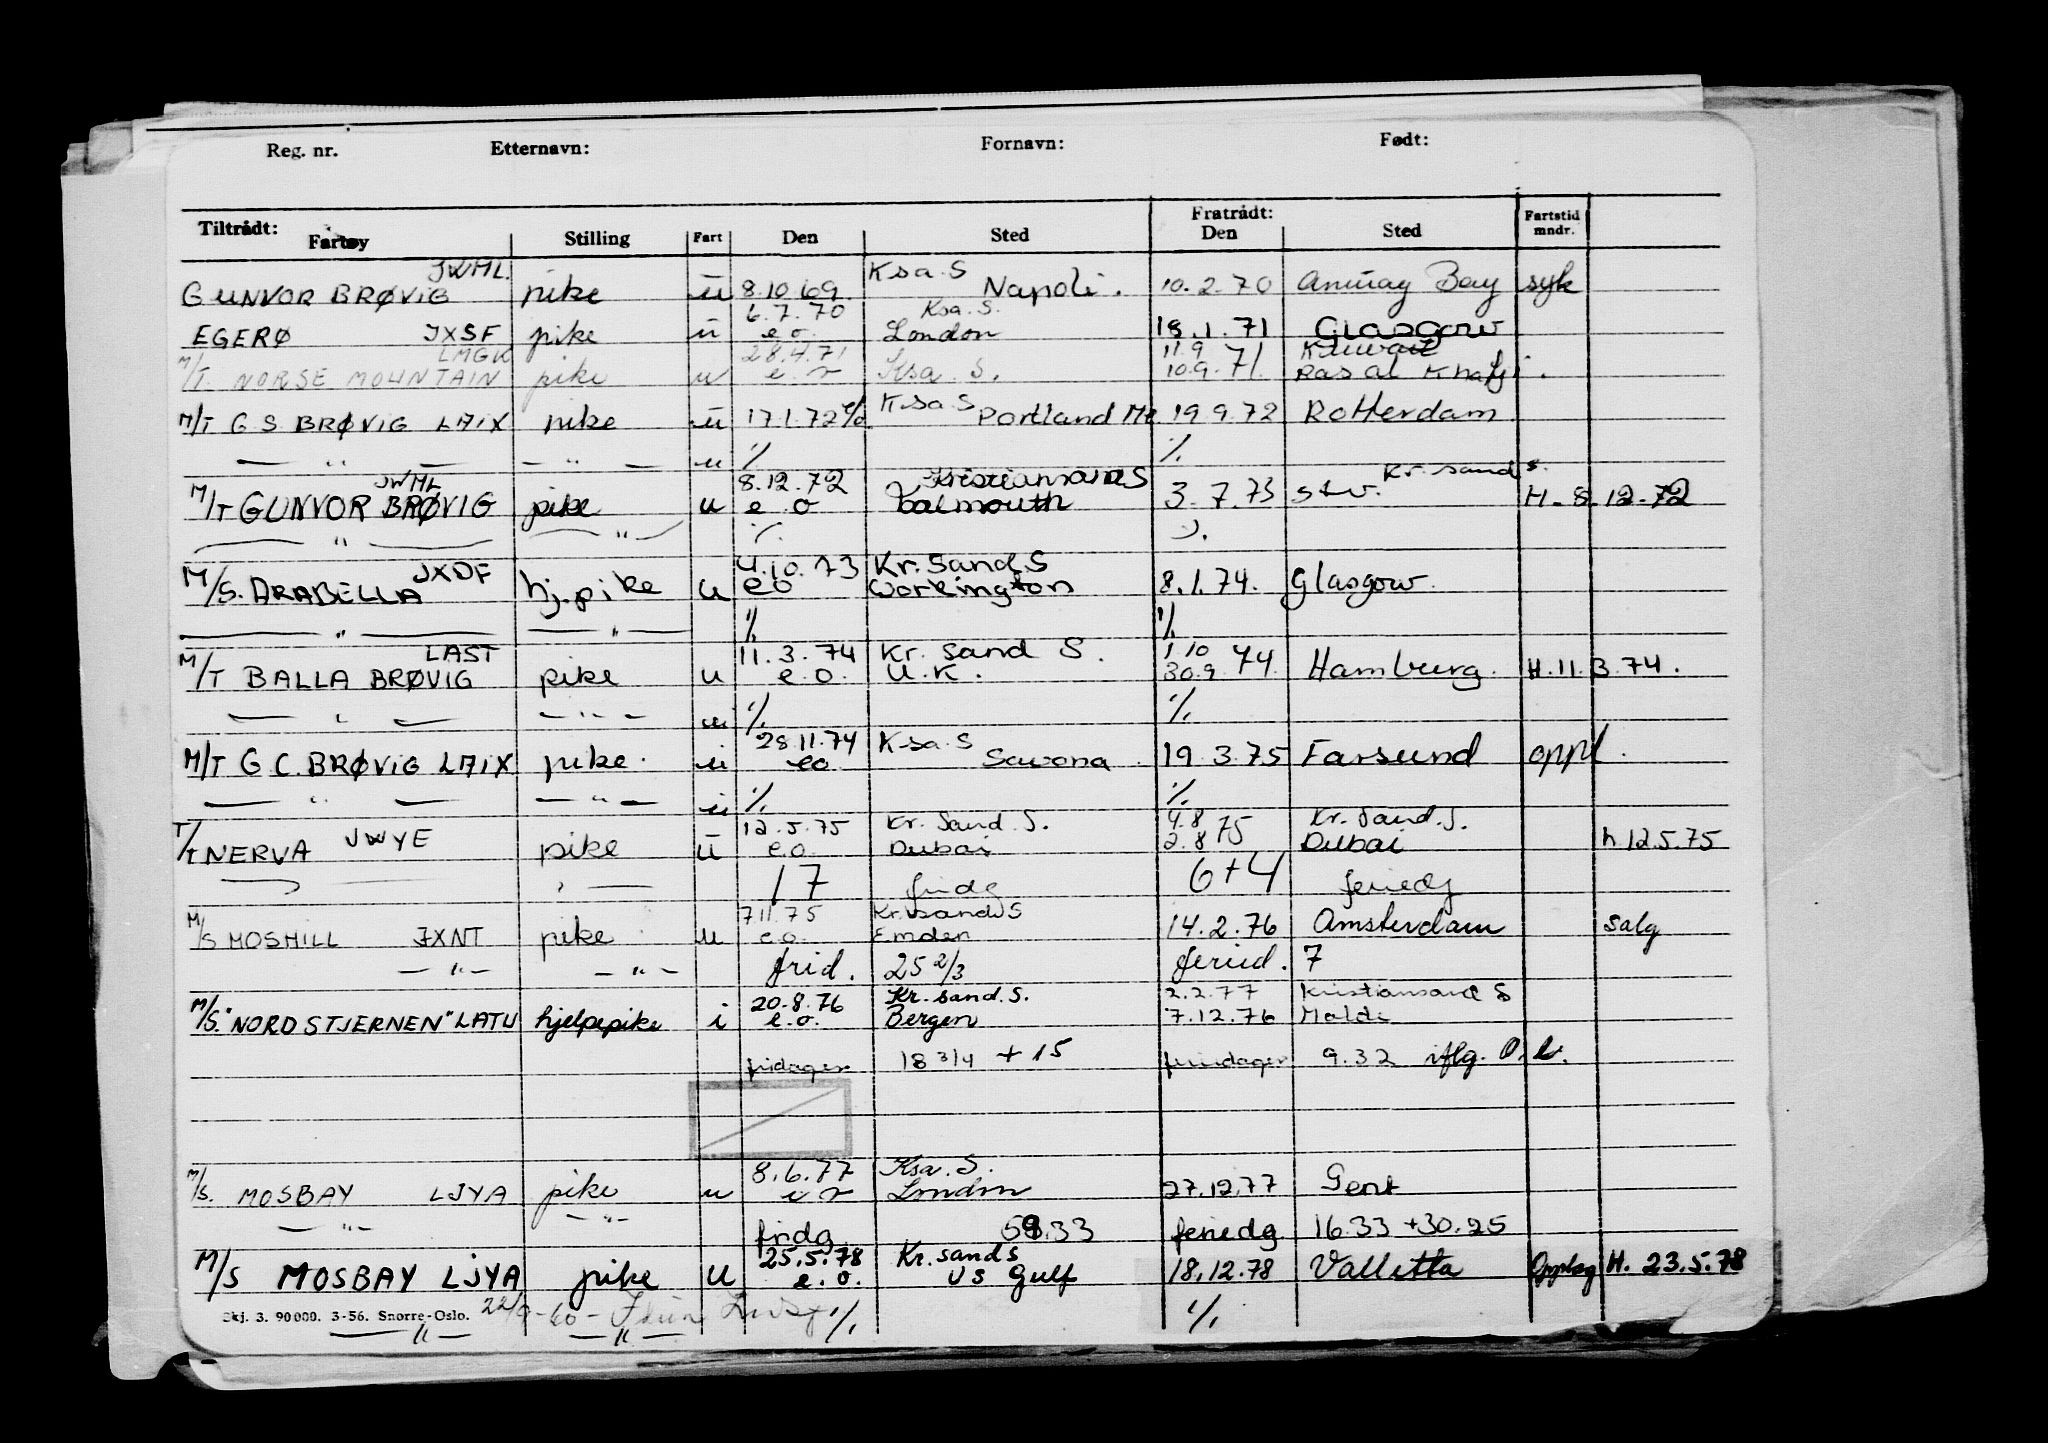 Reg. nr. Etternavn: Fornavn: Født:
Tiltrådt: Fratrådt: Fartstid
Fartøy Stilling Fart Den Sted Den Sted mndr.
JWML. Ksa. S
GUNVOR BRØVIG pike u 8.10.69 Napoli. 10.2.70 Amuay Bay syk
6.7.70 Ksa. S.
EGERØ JXSF pike u e.o. London 18.1.71 Glasgow
LMGK 28.4.71 11.9 Kuwait
M/T. NORSE MOUNTAIN pike u Ksa. S. 10.9.71. Ras al Khafji.
Ksa S
M/T G S BRØVIG LAIX pike u 17.1.72 Portland Me. 19.9.72 Rotterdam
— " — — " — u % %
JWML 8.12.72 Kristiansand S Kr. sand S.
M/T GUNVOR BRØVIG pike u e o Falmouth 3.7.73 H. 8.12.72
— " — — " — %.
JXDF 4.10.73 Kr. Sand S
M/S. ARABELLA hj.pike u eo Workington 8.1.74. Glasgow.
— " — — " — % %
LAST 11.3.74 Kr. Sand S. 1 10
M/T BALLA BRØVIG pike u e.o. U.K. 30.9 74 Hamburg. H. 11.3.74.
— " — — " — u % %
28.11.74 Ksa. S
M/T G C. BRØVIG LAIX pike u eo Savona 19.3.75 Farsund oppl.
— " — — " — u % %
12.5.75 Kr. Sand. S. 4.8 Kr. Sand. S.
T/T NERVA JWYE pike u e.o. Dubai 2.8 75 Dubai h 12.5.75
" — 17 fridg 6+4 feriedg
7.11.75 Kr.sand S
M/S MOSHILL JXNT pike u e.o. Emden 14.2.76 Amsterdam salg
— " — — " — frid. 25 2/3 feried. 7
20.8.76 Kr. sand. S. 2.2.77 Kristiansand S
M/S. "NORDSTJERNEN" LATU hjelpepike i e.o. Bergen 7.12.76 Molde
fridager 18 3/4 + 15 feriedager 9.32 iflg.
8.6.77 Ksa. S.
M/S. MOSBAY LJYA pike u London 27.12.77 Gent
— " — — " — fridg .33 feriedg 16.33 +30.25
25.5.78 Kr. sand S
M/S MOSBAY LJYA pike u e.o. US Gulf 18.12.78 Valletta Opplag H. 23.5.78
Skj. 3. 90000. 3-56. Snorre-Oslo. 22/9-60 -
— " — — " — % %